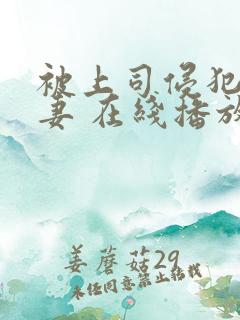 被上司侵犯
妻 在线播放
姜蘑菇29
未经同意禁止转载